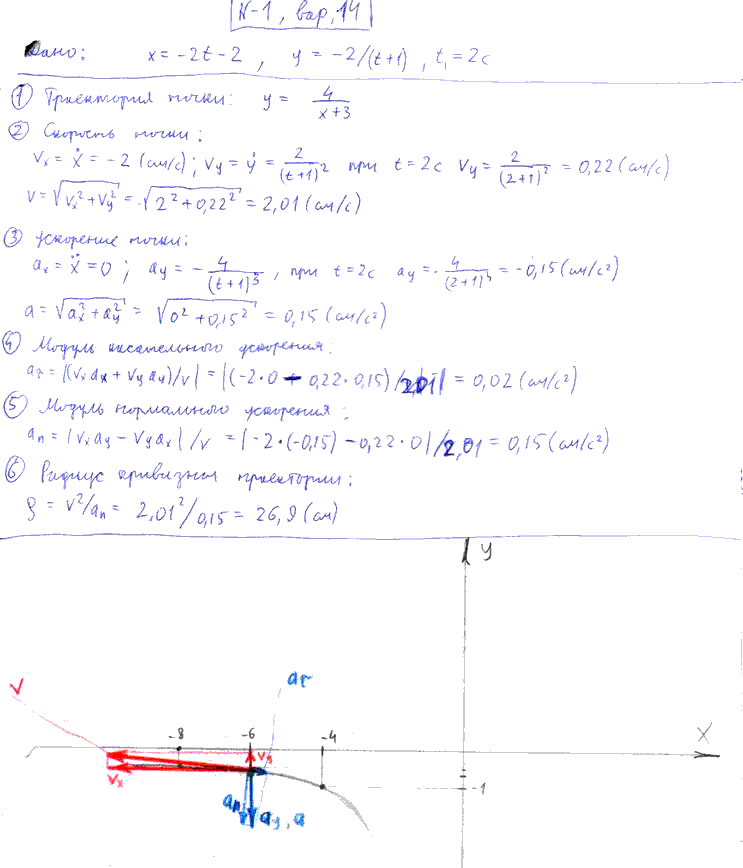 N-1, вар.14
Дано: x = -2t - 2, y = -2/(t+1), t₁ = 2с
① Траектория точки: y = 4/(x+3)
② Скорость точки:
Vx = ẋ = -2 (см/с); Vy = ẏ = 2/(t+1)² при t = 2с Vy = 2/(2+1)² = 0,22 (см/с)
V = √(Vx² + Vy²) = √(2² + 0,22²) = 2,01 (см/с)
③ Ускорение точки:
ax = ẍ = 0; ay = -4/(t+1)³, при t = 2с ay = -4/(2+1)³ = -0,15 (см/с²)
a = √(ax² + ay²) = √(0² + 0,15²) = 0,15 (см/с²)
④ Модуль касательного ускорения.
aτ = |(Vx ax + Vy ay)/V| = |(-2·0 - 0,22·0,15)/2,01| = 0,02 (см/с²)
⑤ Модуль нормального ускорения:
an = |Vx ay - Vy ax|/V = |-2·(-0,15) - 0,22·0|/2,01 = 0,15 (см/с²)
⑥ Радиус кривизны траектории:
ρ = V²/an = 2,01²/0,15 = 26,9 (см)
y
aτ
V
-8 -6 -4
X
Vy
Vx
-1
an ay, a